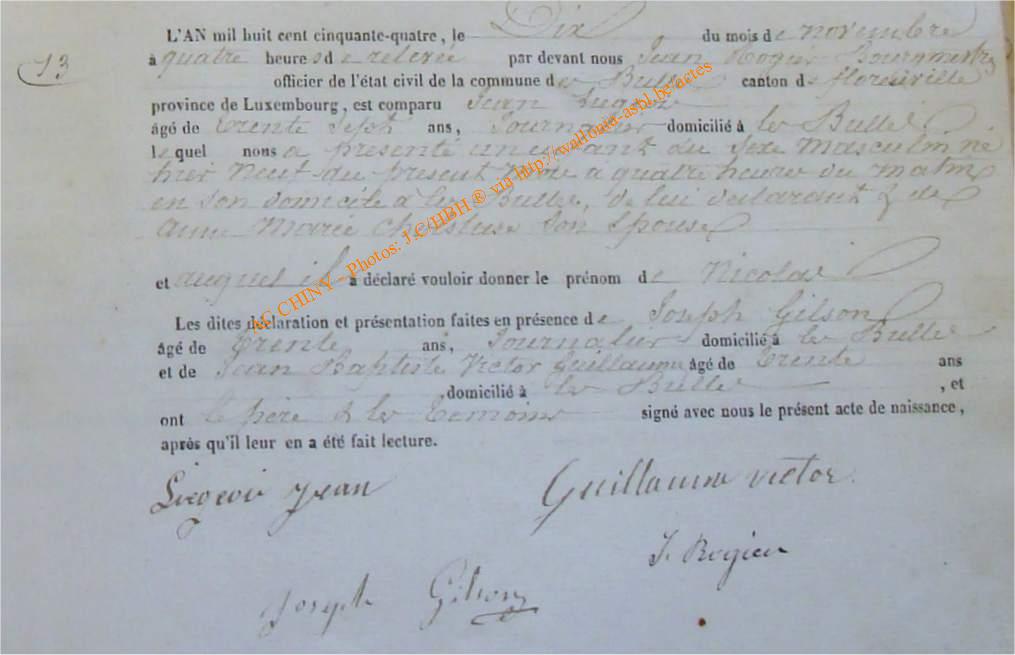 13
L'AN mil huit cent cinquante-quatre, le Dix du mois de novembre
à quatre heures de relevée par devant nous Jean Rogier Bourgmestre
officier de l'état civil de la commune des Bulles canton de florenville
province de Luxembourg, est comparu Jean
âgé de trente Sept ans, Journalier domicilié à les Bulles
lequel nous a présenté un enfant du Sexe Masculin né
hier Neuf du présent Mois à quatre heures du matin
en son domicile à les Bulles, de lui déclarant & de
Anne Marie son Epouse
et auquel il a déclaré vouloir donner le prénom de Nicolas
Les dites déclaration et présentation faites en présence de Joseph Gilson
âgé de trente ans, Journalier domicilié à les Bulles
et de Jean Baptiste Victor Guillaume âgé de trente ans
domicilié à les Bulles, et
ont le père & les témoins signé avec nous le présent acte de naissance,
après qu'il leur en a été fait lecture.
Liégeois Jean Guillaume victor.
J. Rogier
Joseph Gilson
AC CHINY - Photos: J.C/HBH ® via http://wallonia-asbl.be/actes